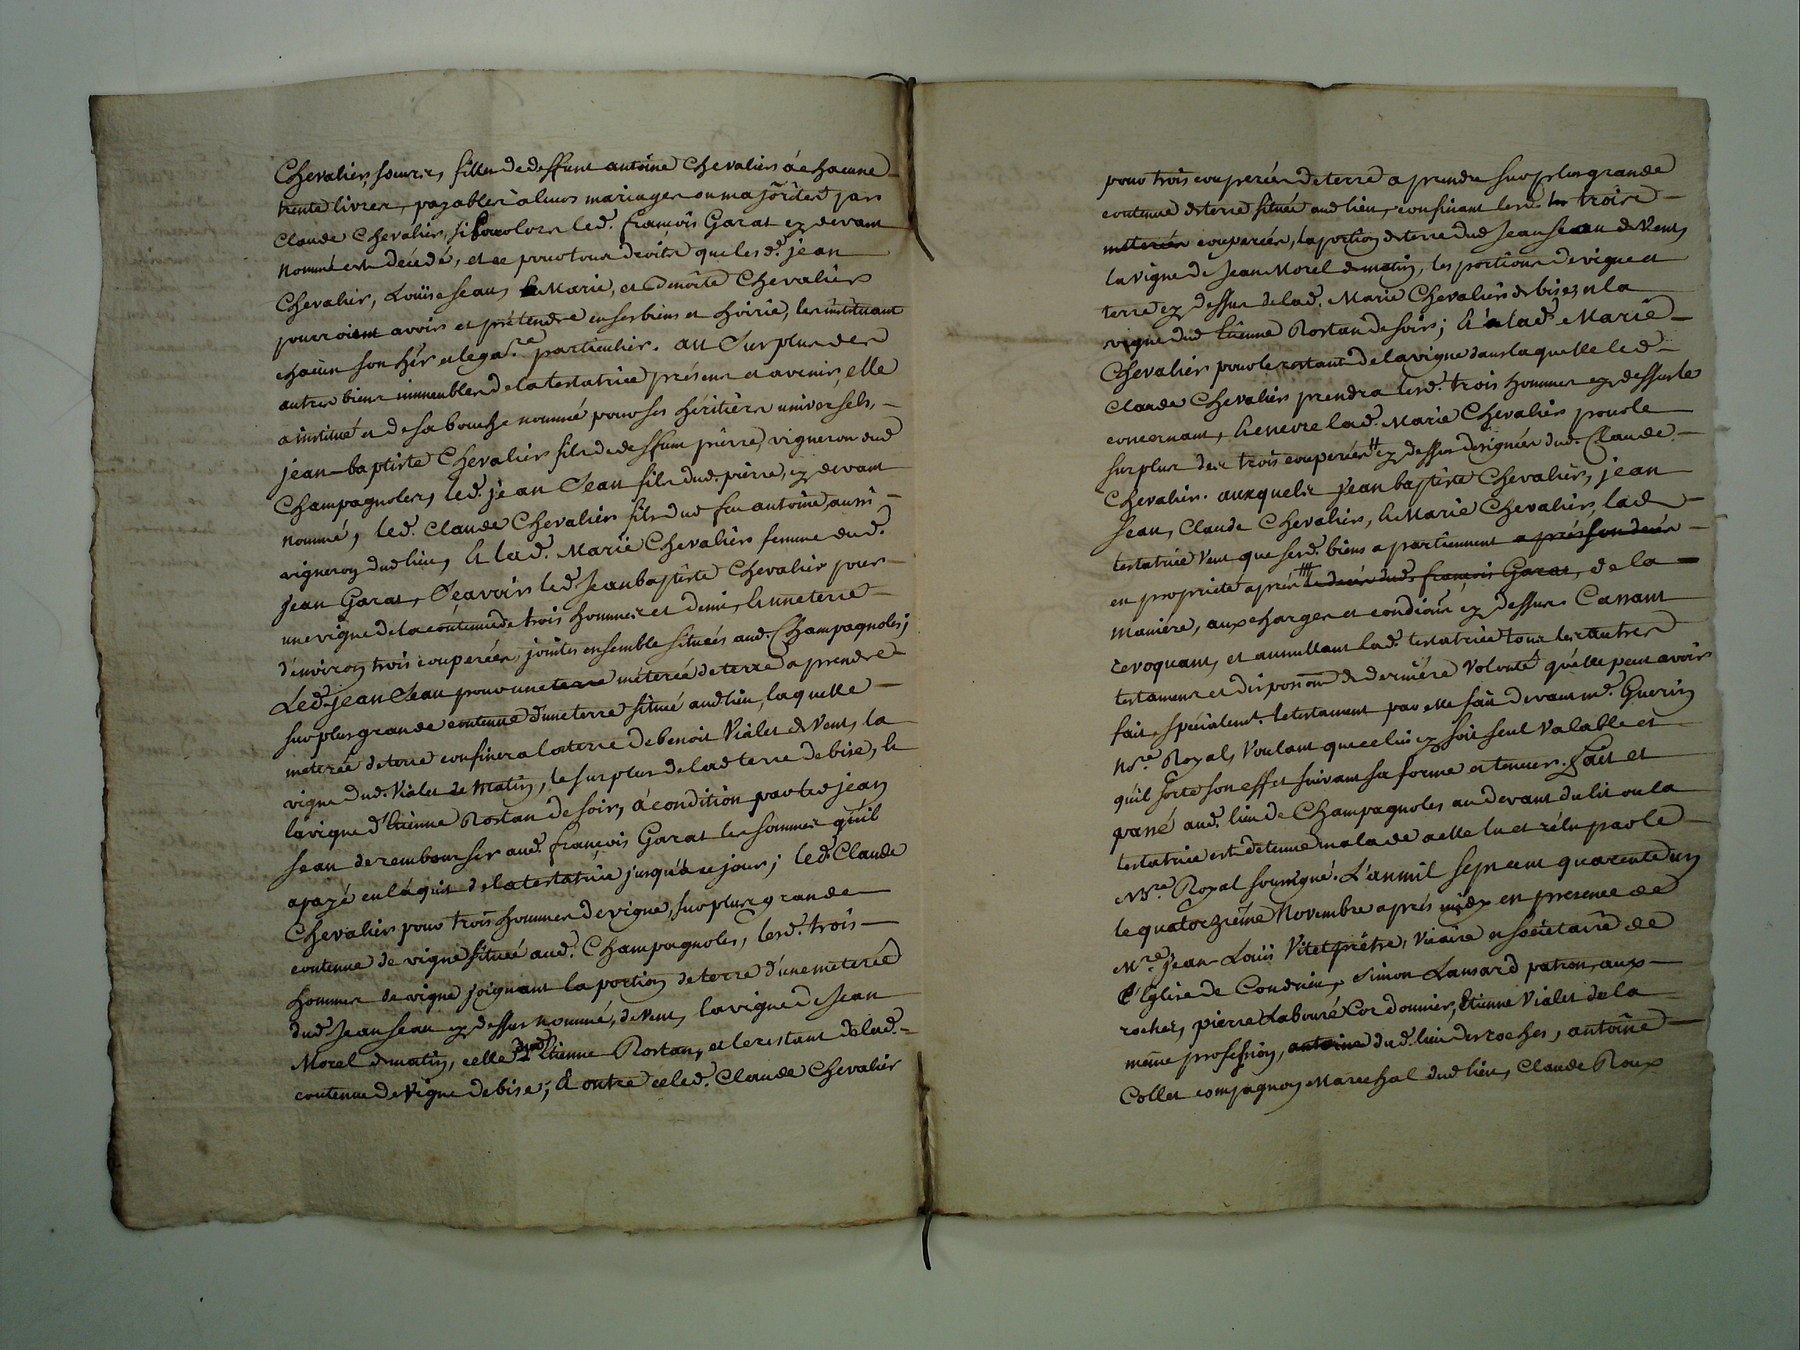 Chevalier, soeurs, filles de deffunt antoine Chevalier á chacune
trente livres, payables á leurs mariages ou majórités par
Claude Chevalier, si pour lors led. françois Garat cy devant
nommé est décédé, et ce pour tous droits que lesd. jean
Chevalier, Loüise Jean, & Marie, et Benoite Chevalier
pourroient avoir et prétendre en ses biens et hoirie, les instituant
chacun son hér. et lega.re particulier. au Surplus des
autres biens immeubles de la testatrice présens et avenir, elle
a institué et de sa bouche nommé pour ses héritiers universels,
jean-baptiste Chevalier fils de deffunt pierre, vigneron dud
Champagnoles, led. jean Jean fils dud. pierre, cy devant
nommé, led. Claude Chevalier fils dud feu antoine, aussi
vigneron dud lieu, & lad. Marie Chevalier femme dud.
jean Garat, Sçavoir led. Jean baptiste Chevalier pour
une vigne de la contenue de trois hommes et demi, & une terre
d'environ trois couperées, jointes ensemble situées aud. Champagnoles;
Led. jean Jean pour une terre méterée de terre a prendre
sur plus grande contenue d'une terre située aud lieu, laquelle
meterée de terre confinera la terre de benoit Vialet de Vent, la
vigne dud. Vialet de Matin, le surplus de lad terre de bise, &
la vigne d'Etienne Rostan de soir, á condition par led jean
Jean de rembourser aud. françois Garat les sommes qu'il
a payé en l'áquit de la testatrice jusqu'á ce jour; led. Claude
Chevalier pour trois hommes de vigne, sur plus grande
contenue de vigne située aud. Champagnoles, lesd. trois
hommes de vigne joignant la portion de terre d'une meterée
dud Jean Jean cy dessus nommé, de Vent, la vigne de Jean
Morel de matin, celle dud Etienne Rostan, et le restant de lad.
contenue de Vigne de bise; & outre ce led. Claude Chevalier
pour trois couperées de terre a prendre sur plus grande
contenue de terre située aud lieu, confinant lesd. trois
meterées couperées, la portion de terre dud Jean Jean de Vent,
la vigne de Jean Morel de matin, les portions de vigne et
terre cy dessus de lad. Marie Chevalier de bise, & la
vigne dud Etienne Rostan de soir; & a lad. Marie
Chevalier pour le restant de la vigne dans laquelle led
Claude Chevalier prendra lesd. trois hommes cy dessus le
concernant, & encore lad. Marie Chevalier pour le
surplus des trois couperées cy dessus désignées dud. Claude
Chevalier. auxquels Jean baptiste Chevalier, jean
Jean, Claude Chevalier, & Marie Chevalier, lad
testatrice Veut que sesd. biens apartiennent aprés son decés
en proprieté aprés le decés dud. françois Garat, de la
Maniere, aux charges et condions cy dessus. Cassant
revoquant, et annullant lad. testatrice tous les autres
testamens et disposions de derniere Volonté qu'elle peut avoir
fait, specialemt. le testament par elle fait devant me. Guerin
No.re Royal, Voulant que celui cy soit seul Valable et
qu'il sorte son effet suivant sa forme et teneur. fait et
passé aud. lieu de Champagnoles au devant du lit ou la
testatrice est detenue malade a elle lu et rélu par le
No.re Royal soussigné. L'an mil sept cent quarente un
le quatorziéme Novembre aprés midy en presence de
M.re Jean-Louis Vitet prêtre, Vicaire et sociétaire de
l'Eglise de Condrieu, Simon Lansard patron, aux
roches, pierre Labouré Cordonnier, Etienne Vialet de la
même profession, antoine dud. lieu des roches, antoine
Collet compagnon Marechal dud lieu, Claude Roux